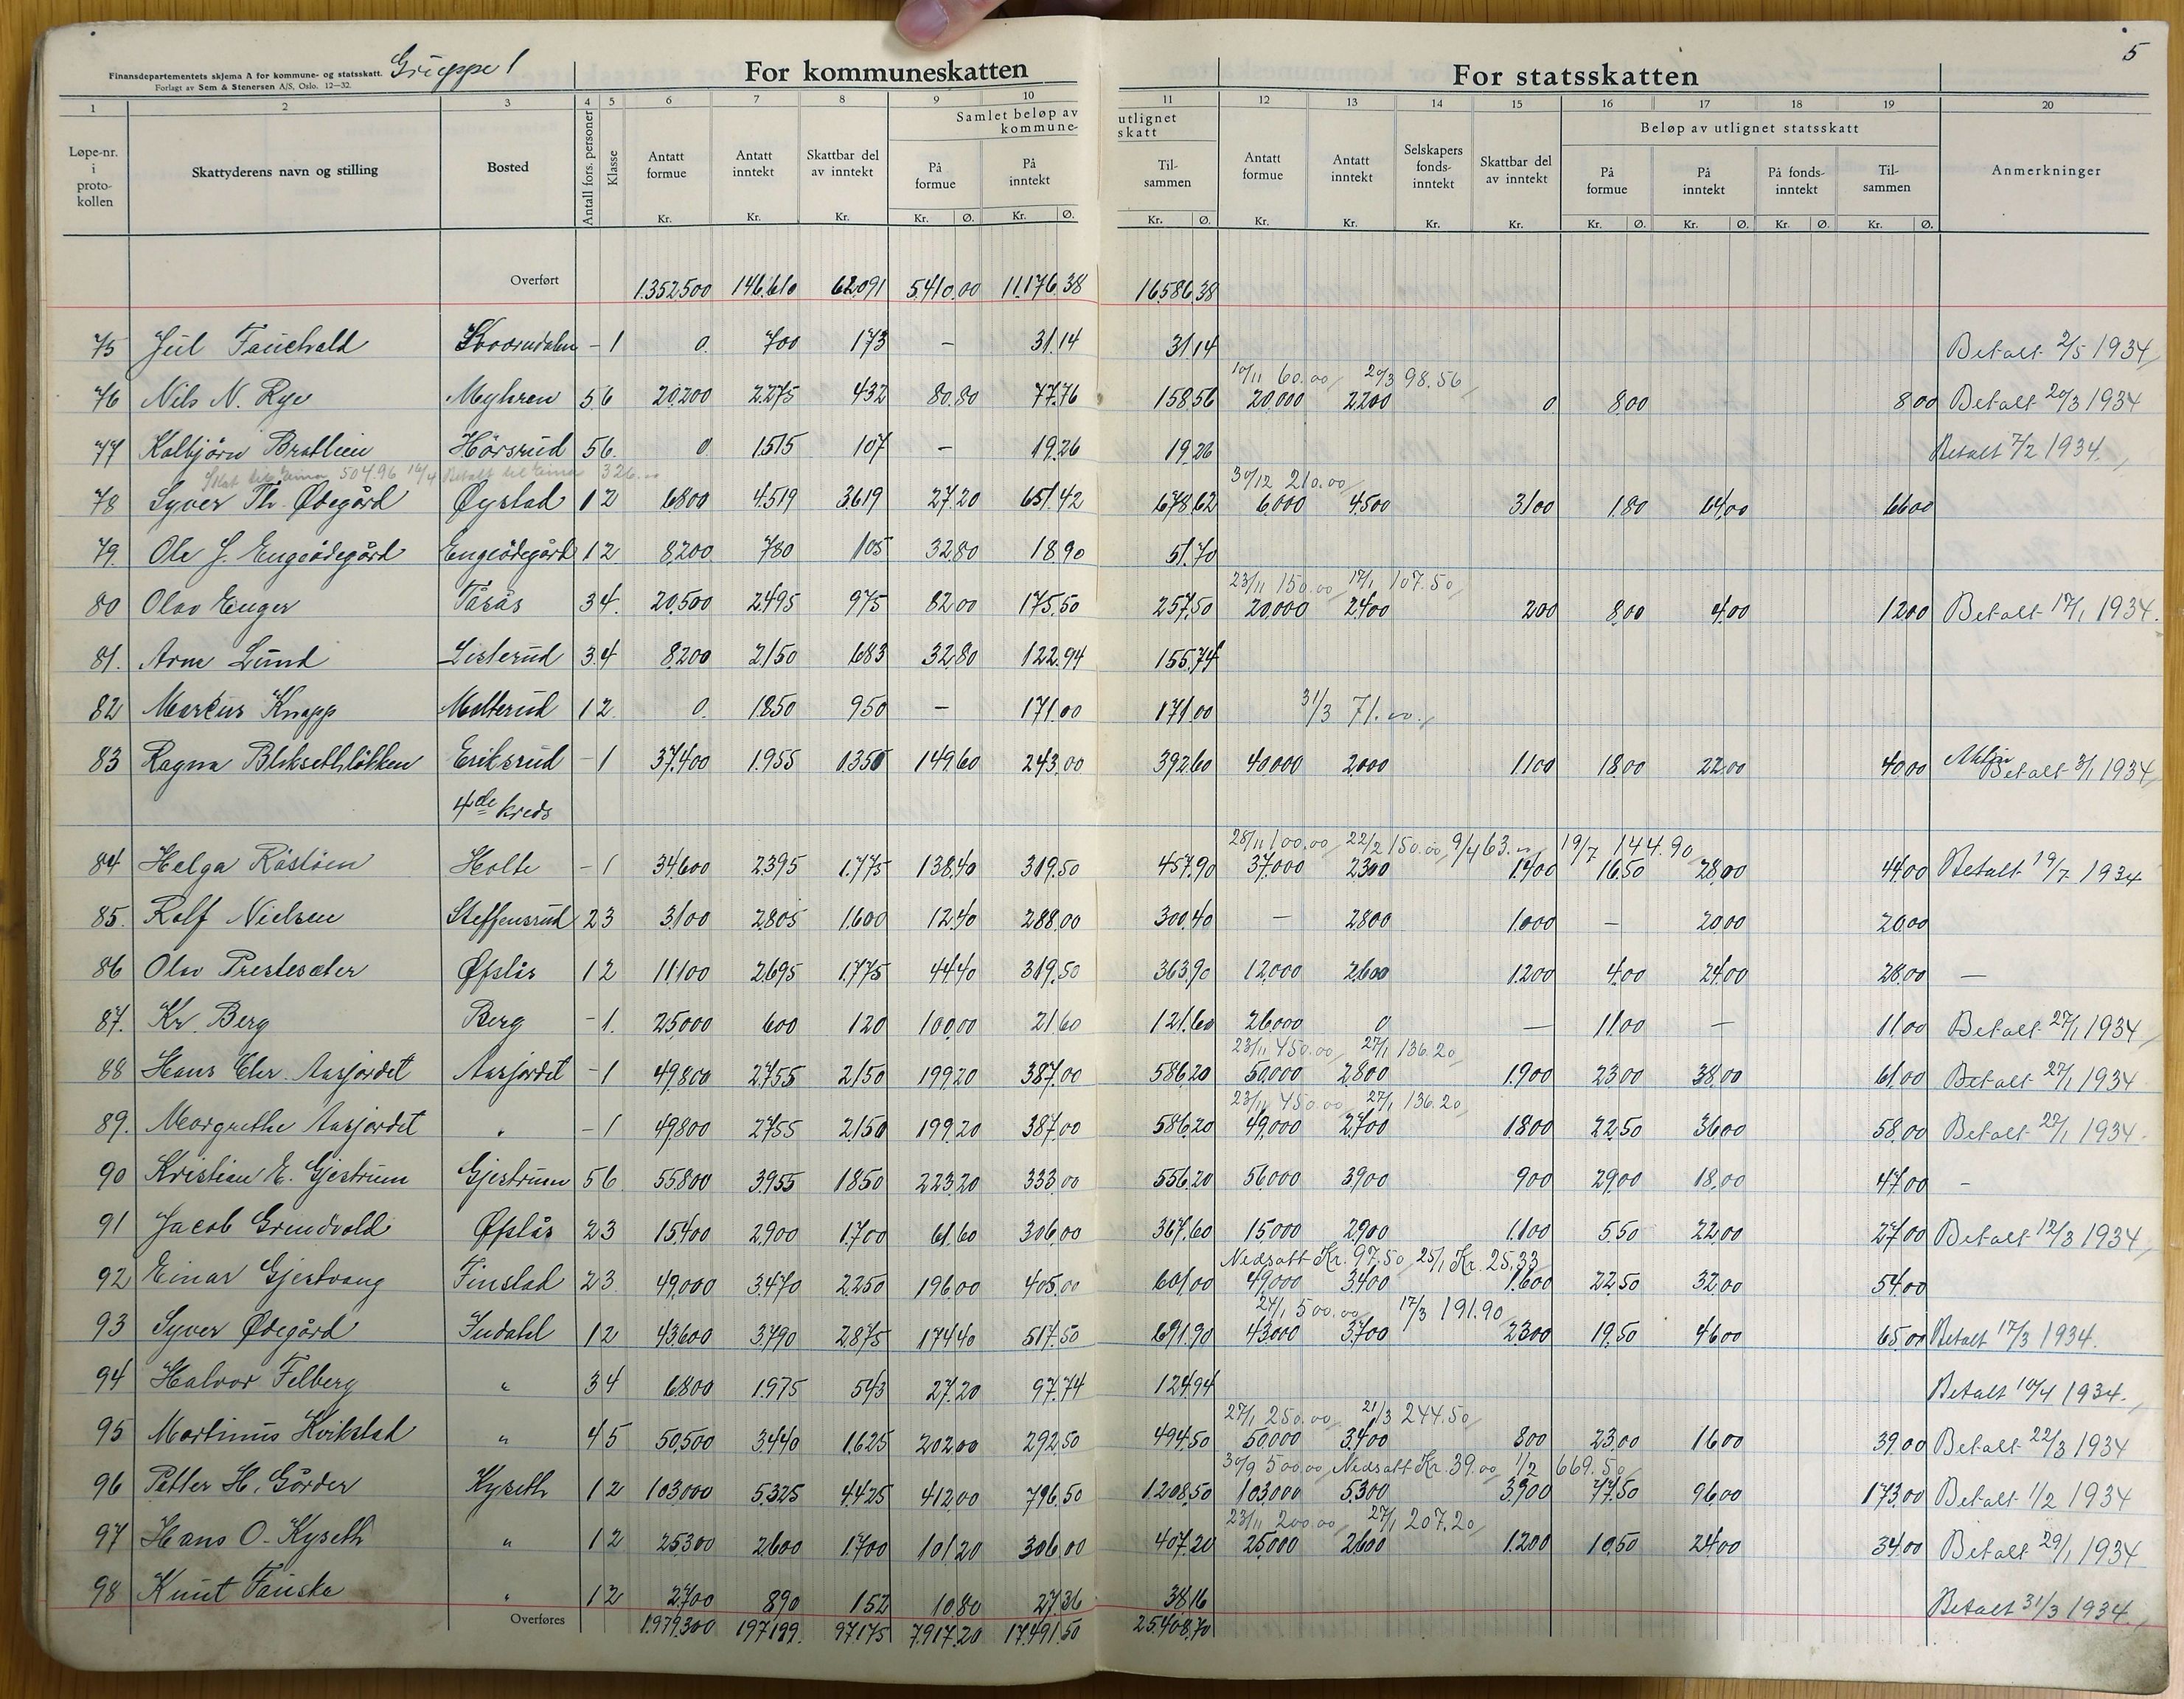 5
Finansdepartementets skjema A for kommune- og statsskatt. Gruppe 1
Forlagt av Sem & Stenersen A/S, Oslo. 12—32.
For kommuneskatten For statsskatten
1 2 3 4 5 6 7 8 9 10 11 12 13 14 15 16 17 18 19 20
Løpe-nr. i proto-kollen Skattyderens navn og stilling Bosted Antall fors. personer Klasse Antatt formue Antatt inntekt Skattbar del av inntekt Samlet beløp av utlignet kommune-skatt På formue På inntekt Til-sammen Antatt formue Antatt inntekt Selskapers fonds-inntekt Skattbar del av inntekt Beløp av utlignet statsskatt På formue På inntekt På fonds-inntekt Til-sammen Anmerkninger
Kr. Kr. Kr. Kr. Ø. Kr. Ø. Kr. Ø. Kr. Kr. Kr. Kr. Kr. Ø. Kr. Ø. Kr. Ø. Kr. Ø.
Overført 1.352.500 146.610 62.091 5.410.00 11.176.38 16.586.38
75 Jul Fauchald – 1 0. 700 173 – 31.14 31.14 Betalt 2/5 1934
10/11 60.00 20/3 98.56
76 Nils N. Rye Myhren 5 6 20.200 2.275 432 80.80 77.76 158.56 20.000 2200 0 8.00 8.00 Betalt 20/3 1934
77 Kolbjørn Bratlien Hørsrud 5 6. 0 1.515 107 – 19.26 19.26 Betalt 7/2 1934.
Skat til Eina 504.96 16/4 Betalt til Eina 326.00 30/12 210.00
78 Syver Th. Ødegård Øystad 1 2 6.800 4.519 3.619 27.20 651.42 678.62 6.000 4.500 3100 1.80 64.00 66.00
79. Ole J. Engeödegård Engeödegård 1 2. 8.200. 780 105 32.80 18.90 51.70
23/11 150.00 17/1 107.50
80 Olav Enger Tåsås 3 4. 20.500 2.495 975 82.00 175.50 257.50 20.000 2.400 200 8.00 4.00 12.00 Betalt 17/1 1934.
81. Arne Lund Listerud 3 4 8.200 2.150 683 32.80 122.94 155.74
82 Marcus Knapp Molterud 1 2. 0. 1.850 950 – 171.00 171.00 31/3 71.00
83 Ragna Bliksethløkken Eriksrud – 1 37.400 1.955 1.350 149.60 243.00 392.60 40.000 2.000 1.100 18.00 22.00 40.00 Betalt 3/1 1934
4de kreds
28/11 100.00 22/2 150.00 9/4 63.00 19/7 144.90
84 Helga Røstøen Holte – 1 34.600 2.395 1.775 138.40 319.50 457.90 37.000 2300 1.400 16.50 28.00 44.00 Betalt 19/7 1934
85. Rolf Nielsen Steffensrud 2 3 3.100 2.805 1.600 12.40 288.00 300.40 – 2.800 1.000 – 20.00 20.00
86 Olav Prestesæter Øfslås 1 2 11.100 2.695 1.775 44.40 319.50 363.90 12.000 2.600 1.200 4.00 24.00 28.00 –
87. Kr. Berg Berg – 1. 25.000 600 120 100.00 21.60 121.60 26.000 0 – 11.00 – 11.00 Betalt 27/1 1934
23/11 450.00 27/1 136.20
88 Hans Chr. Aasjordet Aasjordet – 1 49.800 2.755 2.150 199.20 387.00 586.20 50.000 2.800 1.900 23.00 38.00 61.00 Betalt 27/1 1934
23/11 450.00 27/1 136.20
89. Margrethe Aasjordet " – 1 49.800 2.755 2.150 199.20 387.00 586.20 49.000 2.700 1.800 22.50 36.00 58.00 Betalt 27/1 1934.
90 Kristian E. Gjestrum Gjestrum 5 6 55.800 3.955 1.850 223.20 333.00 556.20 56.000 3.900 900 29.00 18.00 47.00 –
91 Jacob Grindvold Øfslås 2 3 15.400 2.900 1.700 61.60 306.00 367.60 15.000 2.900 1.100 5.50 22.00 27.00 Betalt 12/3 1934
Nedsatt Kr. 97.50 25/1 Kr. 25.33
92 Einar Gjestvang Finstad 2 3. 49.000 3.470 2.250 196.00 405.00 601.00 49.000 3.400 1.600 22.50 32.00 54.00
24/1 500.00 17/3 191.90
93 Syver Ødegård Indahl 1 2 43.600 3.790 2.875 174.40 517.50 691.90 43.000 3.700 2.300 19.50 46.00 65.00 Betalt 17/3 1934.
94 Halvor Felberg " 3 4 6.800 1.975 543 27.20 97.74 124.94 Betalt 10/4 1934.
27/1 250.00 21/3 244.50
95 Martinus Kvikstad " 4 5 50.500 3.440 1.625 202.00 292.50 494.50 50.000 3.400 800 23.00 16.00 39.00 Betalt 22/3 1934
30/9 500.00 Nedsatt Kr. 39.00 1/2 669.50
96 Petter H. Gårder Kyseth 1 2 103.000 5.325 4.425 412.00 796.50 1.208.50 103.000 5.300 3.900 77.50 96.00 173.00 Betalt 1/2 1934
23/11 200.00 27/1 207.20
97 Hans O. Kyseth " 1 2 25.300 2.600 1.700 101.20 306.00 407.20 25.000 2.600 1.200 10.50 24.00 34.00 Betalt 29/1 1934
98 Knut Fauske " 1 2 2.700 890 152 10.80 27.36 38.16 Betalt 31/3 1934.
Overføres 1.979.300 197.199. 97.175 7.917.20 17.491.50 25.408.70